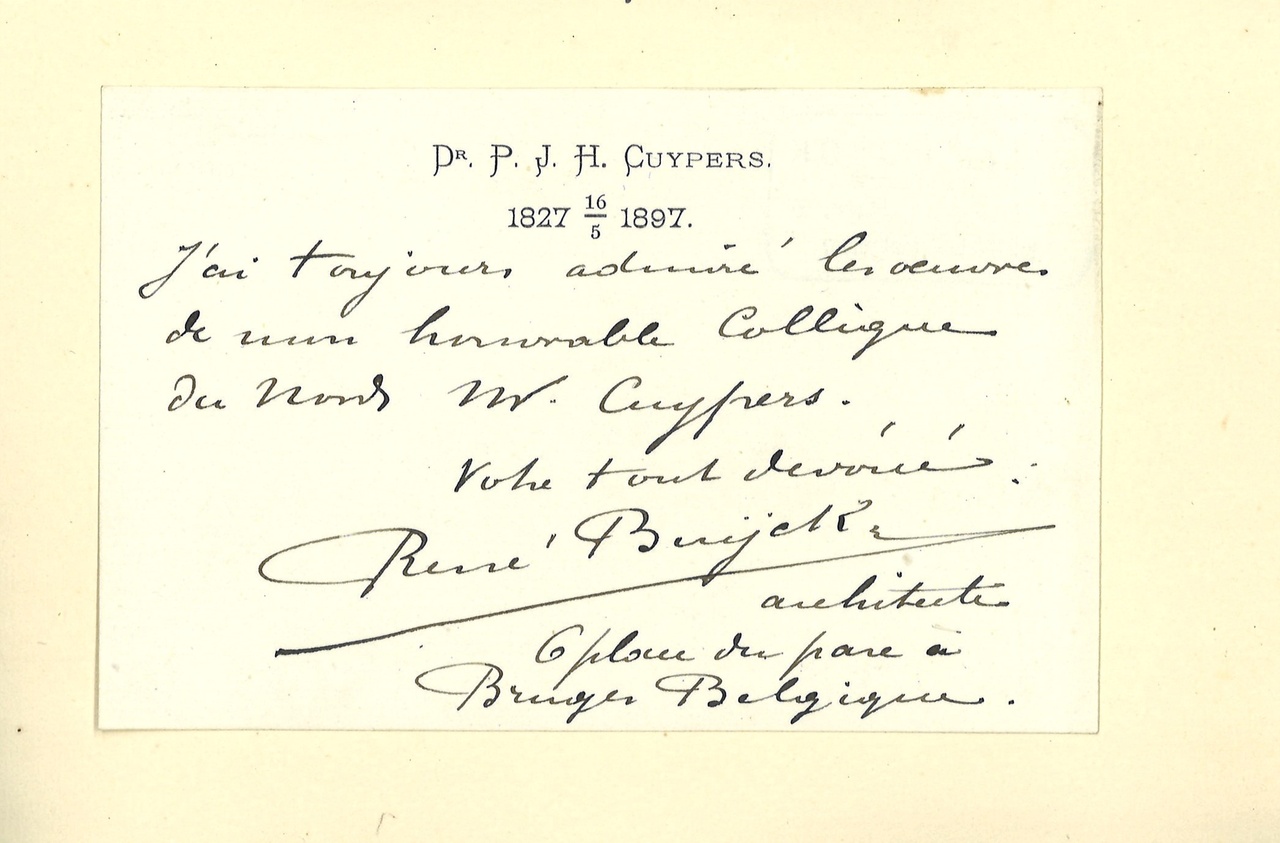 Dr. P. J. H. Cuypers.
1827 16/5 1897.
J'ai toujours admiré les oeuvres
de mon honorable Collègue
du Nord Mr. Cuypers.
Votre tout dévoué.
René Buÿck
architecte
6 place du parc à
Bruges Belgique.